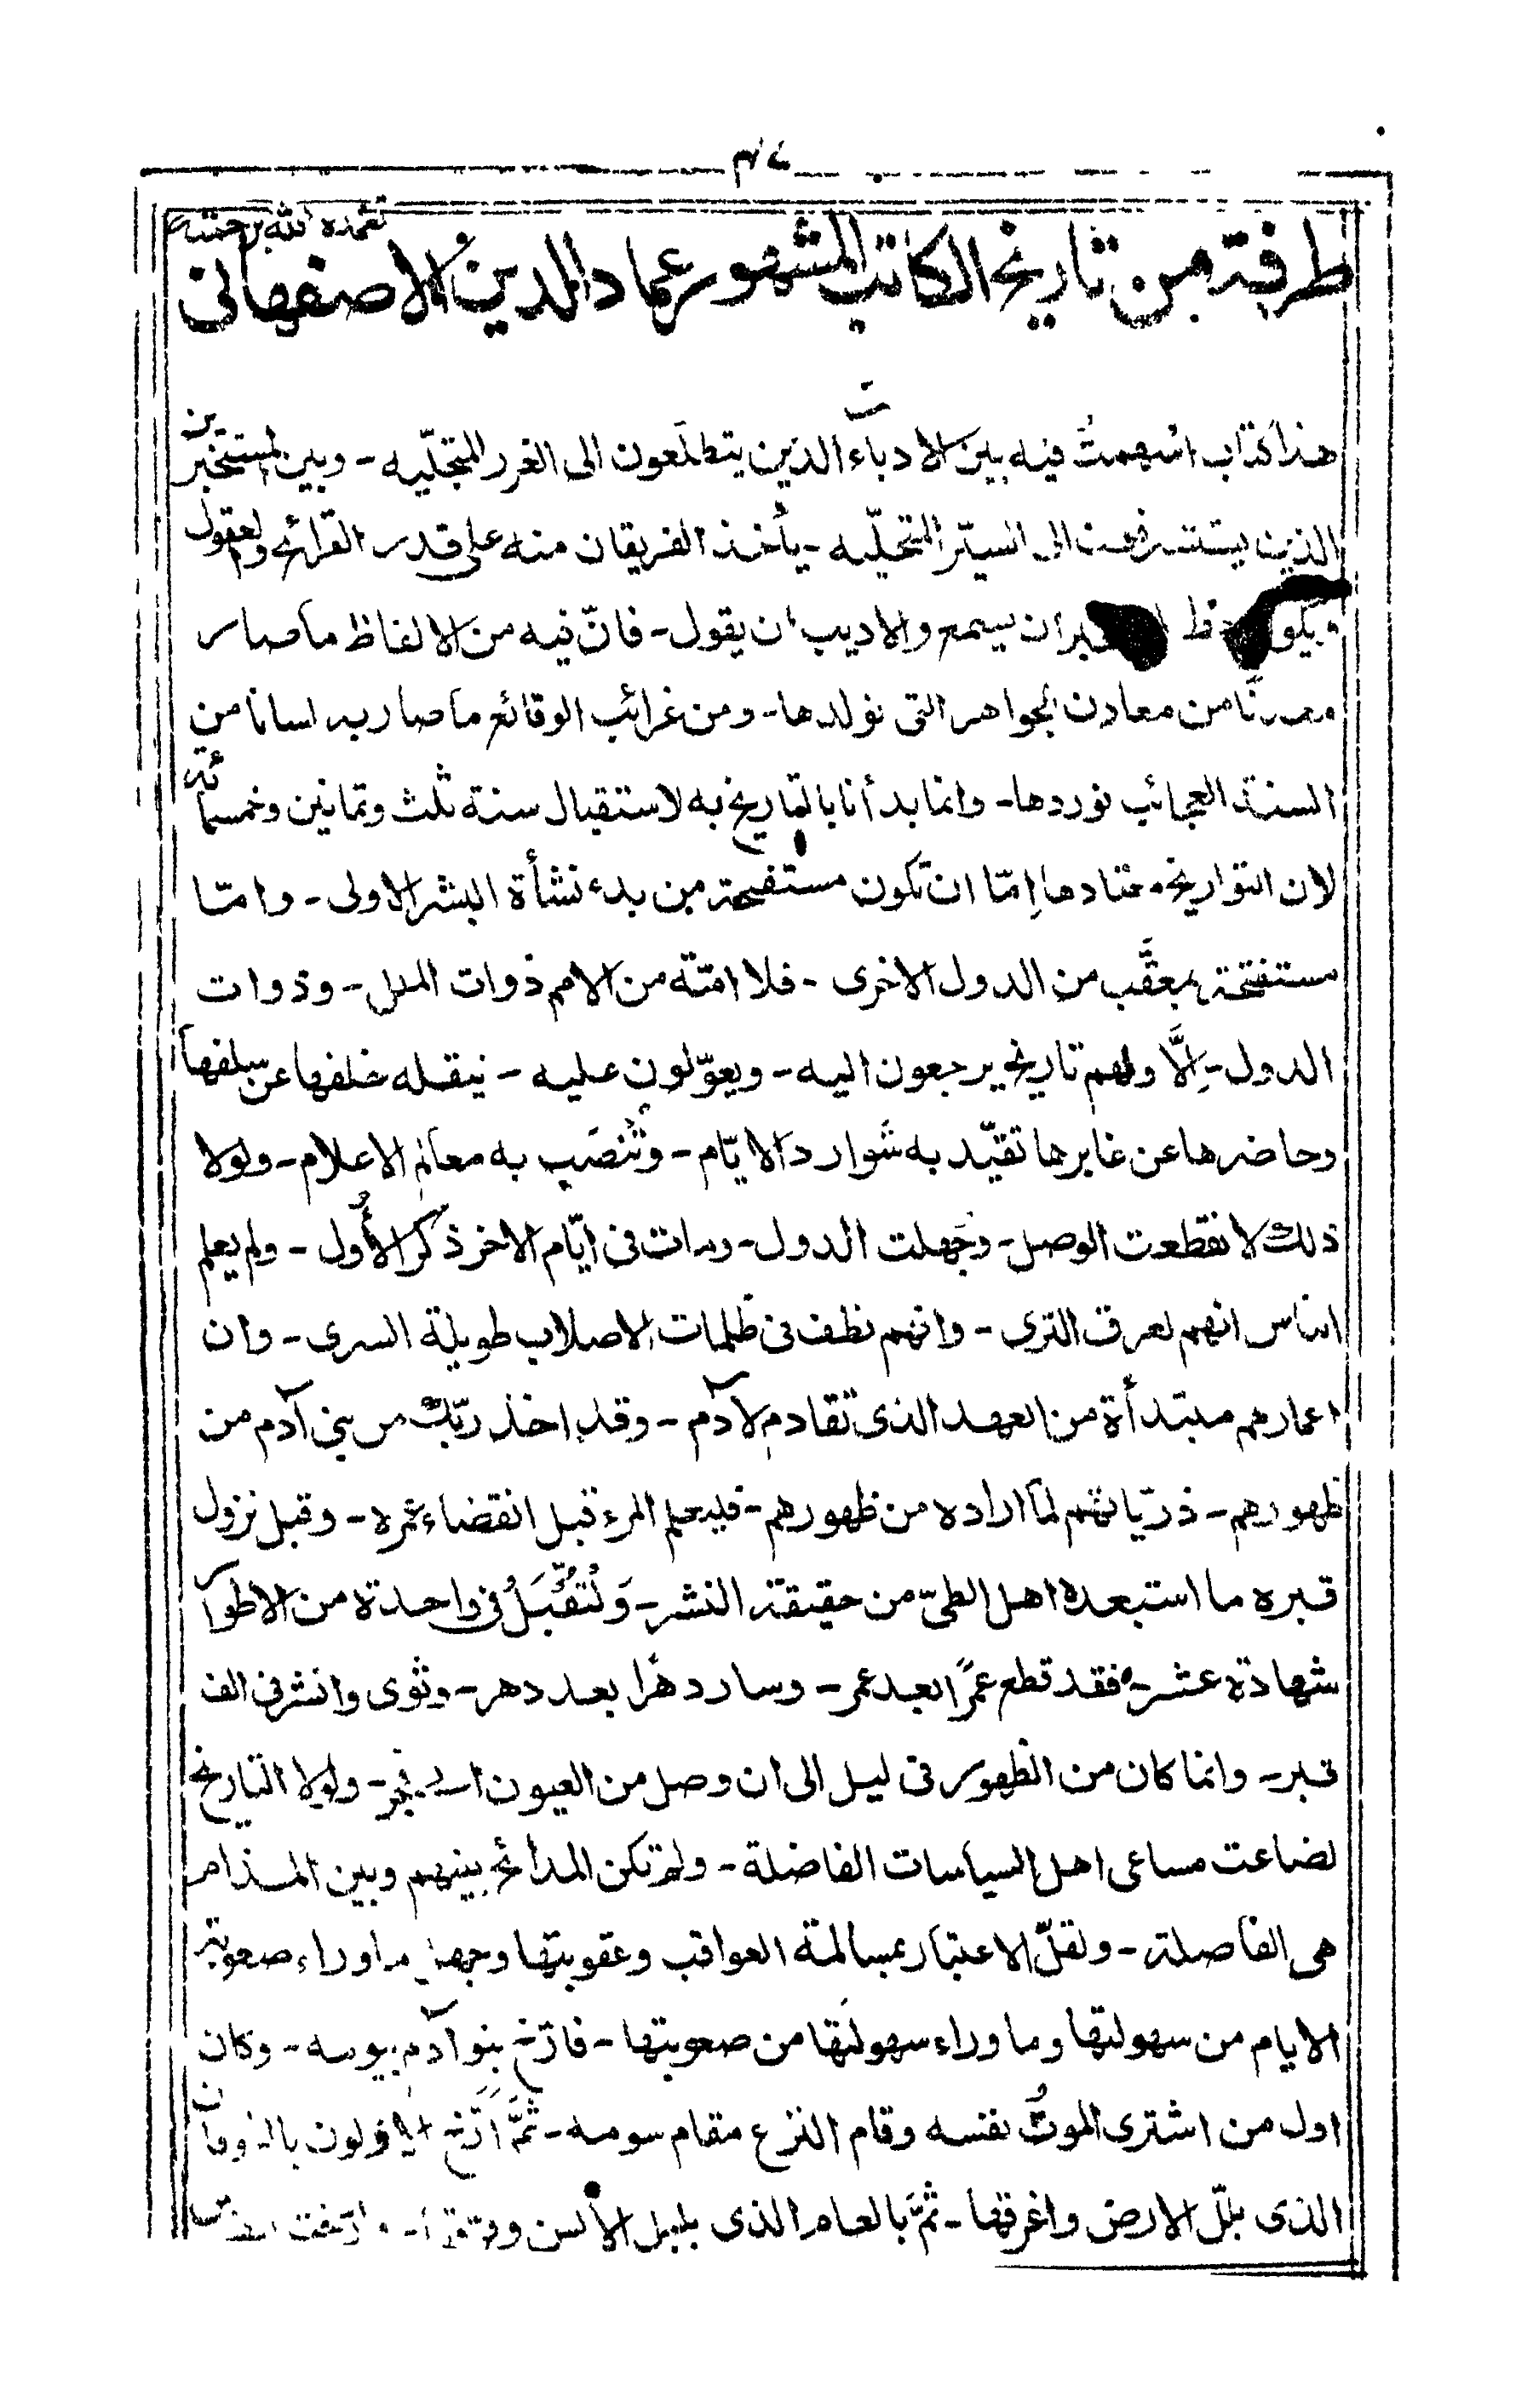 طرفة من تاريخ الكاتب المشهور عماد الدين الاصفهانى تغمده الله برحمته
هذا كتاب اسهمتُ فيه بين الادباء الذين يتطلّعون الى الغرر المتجلّيه - وبين المستخبرين
الذين يستشرفون الى السير المتحلّيه - يأخذ الفريقان منه على قدر القرائح والعقول
ان يسمع والاديب ان يقول - فانّ فيه من الالفاظ ما صار
معدنًا من معادن الجواهر التى نولدها - ومن غرائب الوقائع ما صار به لسانا من
السنة العجائب نوردها - وانما بدأنا بالتاريخ به لاستقبال سنة ثلث وثمانين وخمسمائة
لان التواريخ معتادها اِمّا ان تكون مستفتحة من بدء نشأة البشر الاولى - وامّا
مستفتحة بمعقَّب من الدول الاخرى - فلا امّة من الامم ذوات الملل - وذوات
الدول - اِلَّا ولهم تاريخ يرجعون اليه - ويعوّلون عليه - ينقله خلفها عن سلفها
وحاضرها عن غابرها تقيّد به شَوارد الايّام - وتُنصَب به معالم الاعلام - ولولا
ذلك لانقطعت الوصل - وجَهلت الدول - ومات فى ايّام الاخر ذكر الأُول - ولم يعلم
الناس انهم لعرق الثرى - وانهم نطف فى ظلمات الاصلاب طويلة السرى - وان
اعمارهم مبتدأة من العهد الذى تقادم لآدم - وقد اخذ ربّك من بنى آدم من
ظهورهم - ذريّاتهم لما اراده من ظهورهم - فليعلم المرء قبل انقضاء عمره - وقبل نزول
قبره ما استبعده اهل الطىّ من حقيقة النشر - وَلتُقْبَلُ فى واحدة من الاطوار
شهادة عشر - فقد قطع عمرًا بعد عمر - وسار دهرًا بعد دهر - وثوى وانشر فى الف
قبر - وانما كان من الظهور فى ليل الى ان وصل من العيون الى فجر - ولولا التاريخ
لضاعت مساعى اهل السياسات الفاضلة - ولم تكن المدائح بينهم وبين المذام
هى الفاصلة - ولقلّ الاعتبار بمسالمة العواقب وعقوبتها وجهل ما وراء صعوبة
الايام من سهولتها وما وراء سهولتها من صعوبتها - فارّخ بنو آدم بيومه - وكان
اول من اشترى الموتُ نفسه وقام النزع مقام سومه - ثمَّ ارَّخ الاولون بالطوفان
الذى بلّل الارض واغرقها - ثمَّ بالعام الذى بلبل الألسن وفرّقها -